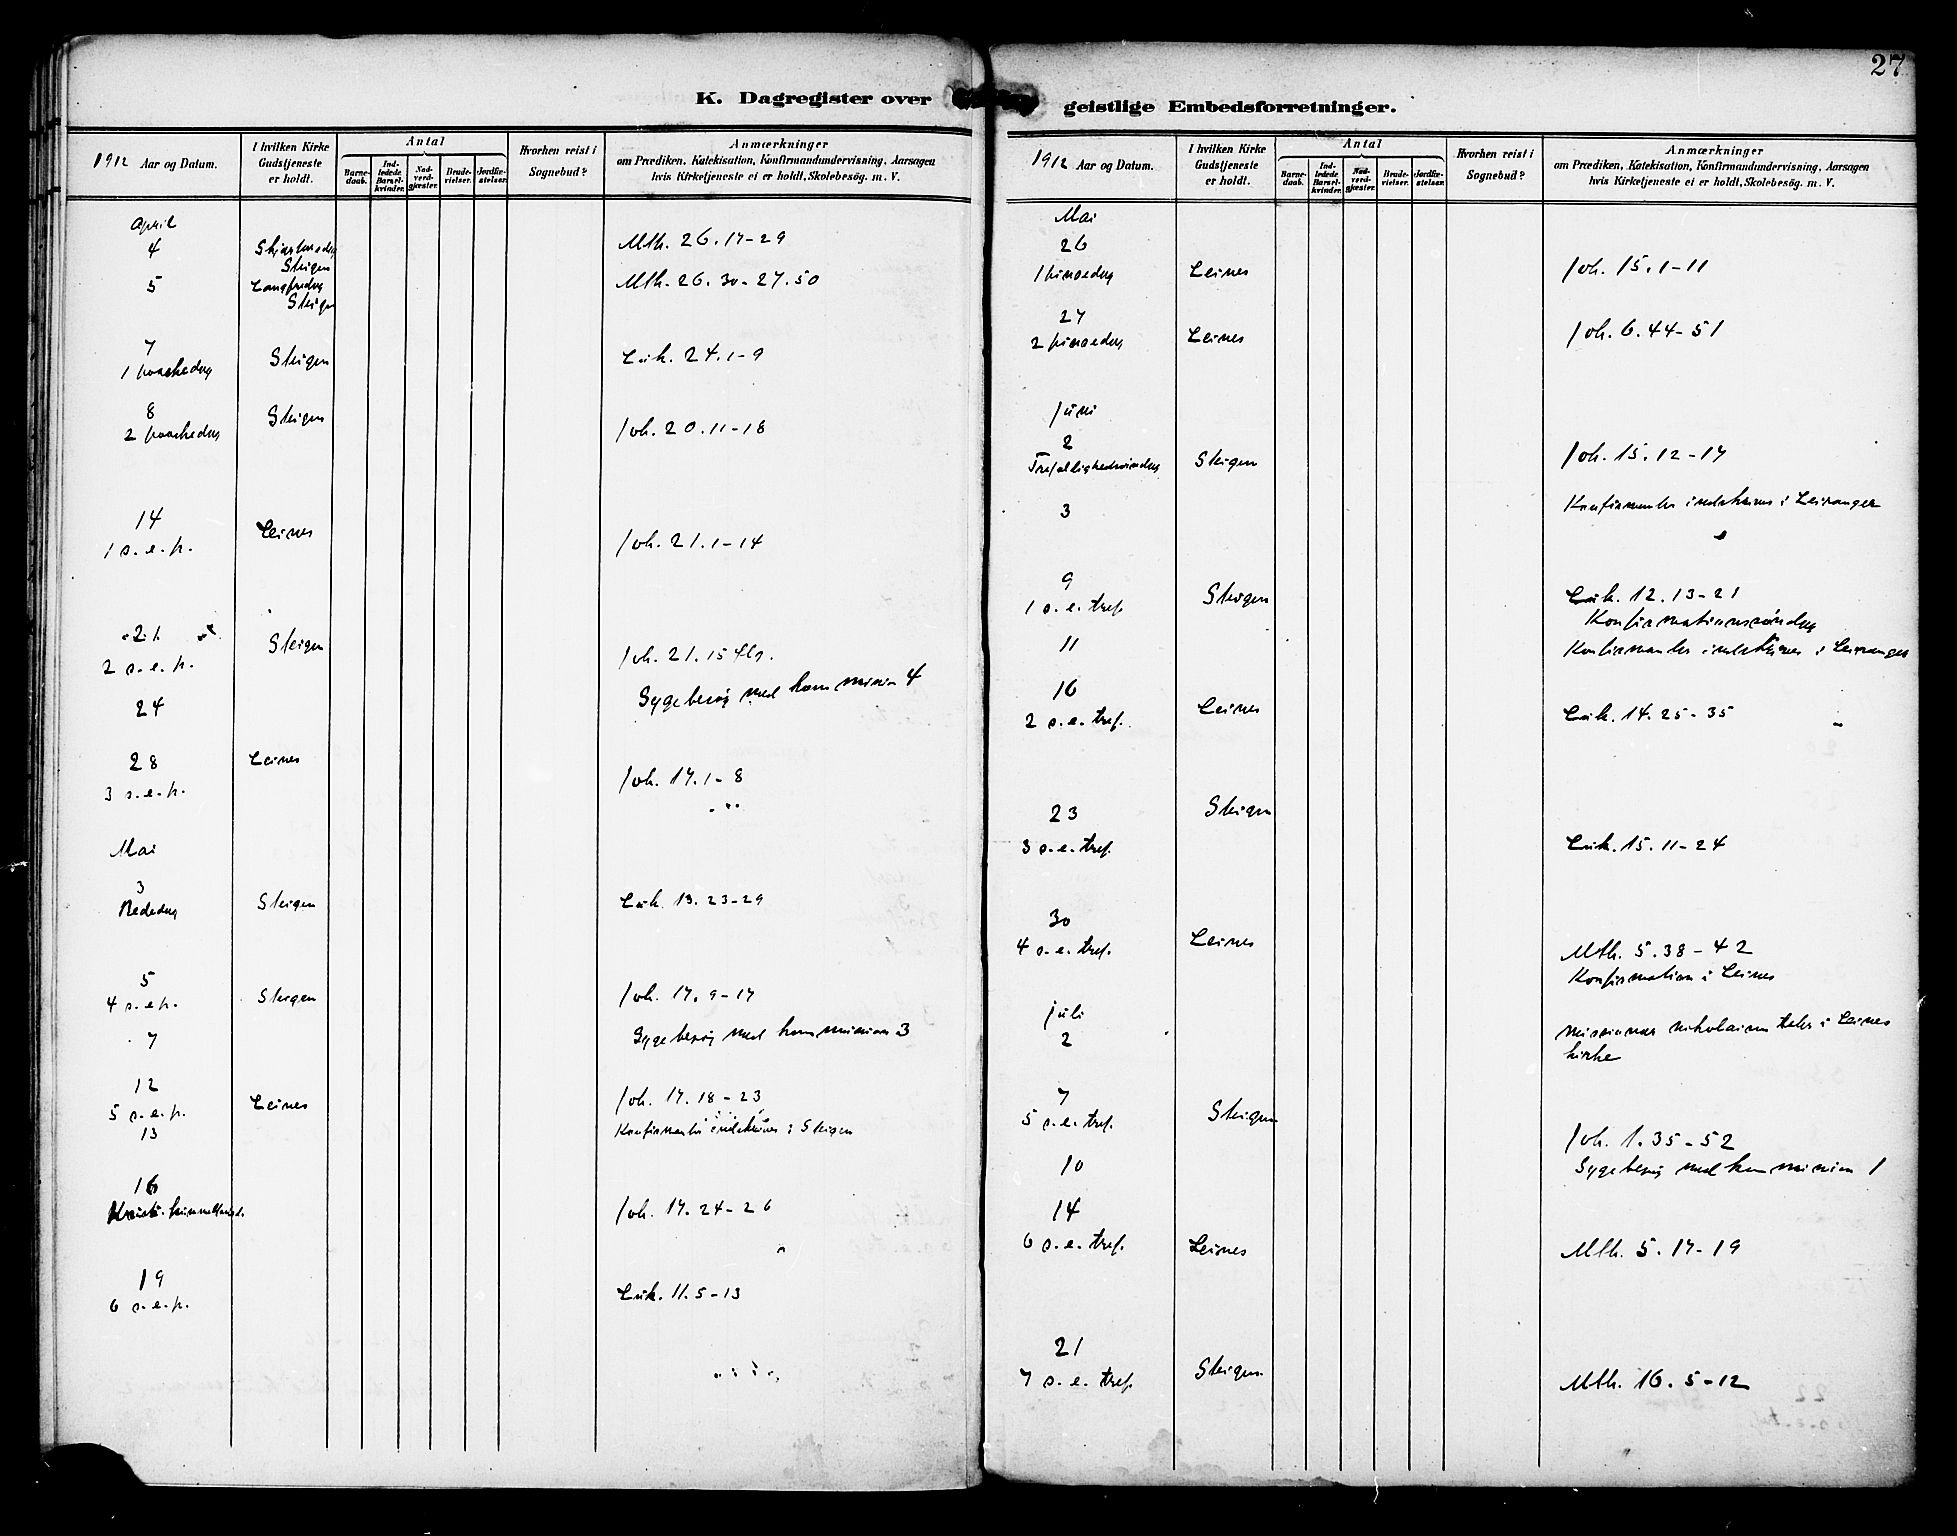 27
K. Dagregister over geistlige Embedsforretninger.
1912 Aar og Datum.
I hvilken Kirke Gudstjeneste er holdt.
Antal
Barnedaab.
Indledede Barselkvinder.
Nadverdgjæster.
Brudevielser.
Jordfæstelser.
Hvorhen reist i Sognebud?
Anmærkninger
om Prædiken, Katekisation, Konfirmandundervisning, Aarsagen
hvis Kirketjeneste ei er holdt, Skolebesög. m. V.
April
4 Skjærtorsdag Steigen Mth. 26. 17-29
5 Langfredag Steigen Mth. 26. 30-27.50
7
1 paaskedag Steigen Luk. 24. 1-9
8
2 paaskedag Steigen Joh. 20. 11-18
14
1 s. e. p. Leines Joh. 21. 1-14
21
2 s. e. p. Steigen Joh. 21. 15 flg.
24 Sygebesøg med kommunion 4
28
3 s. e. p. Leines Joh. 17. 1-8
Mai
3
Bededag Steigen Luk. 13. 23-29
5
4 s. e. p. Steigen Joh. 17. 9-17
7 Sygebesøg med kommunion 3
12
5 s. e. p. Leines Joh. 17. 18-23
13 Konfirmanter indskrives i Steigen
16
Kristi himmelfartsd. Joh. 17. 24-26
19
6 s. e. p. Luk. 11. 5-13
1912 Aar og Datum.
I hvilken Kirke Gudstjeneste er holdt.
Antal
Barnedaab.
Indledede Barselkvinder.
Nadverdgjæster.
Brudevielser.
Jordfæstelser.
Hvorhen reist i Sognebud?
Anmærkninger
om Prædiken, Katekisation, Konfirmandundervisning, Aarsagen
hvis Kirketjeneste ei er holdt, Skolebesög. m. V.
Mai
26
1 pinsedag Leines Joh. 15. 1-11
27
2 pinsedag Leines Joh. 6. 44-51
Juni
2
Trefoldighedssøndag Steigen Joh. 15. 12-17
3 Konfirmanter indskrives i Leiranger
9
1 s. e. tref. Steigen Luk. 12. 13-21
Konfirmationssøndag
11 Konfirmanter indskrives i Leiranger
16
2 s. e. tref. Leines Luk. 14. 25-35
23
3 s. e. tref. Steigen Luk. 15. 11-24
30
4 s. e. tref. Leines Mth. 5. 38-42
Konfirmation i Leines
Juli
2 Missionær Nikolaisen taler i Leines
kirke
7
5 s. e. tref. Steigen Joh. 1. 35-52
10 Sygebesøg med kommunion 1
14
6 s. e. tref. Leines Mth. 5. 17-19
21
7 s. e. tref. Steigen Mth. 16. 5-12